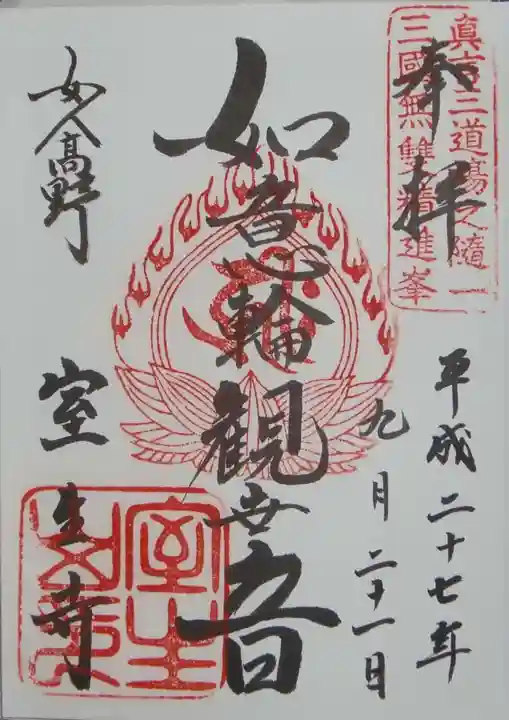 奉拝
真言三道場之随一
三國無雙精進峯
平成二十七年
九月二十一日
如意輪観世音
女人高野
室生寺